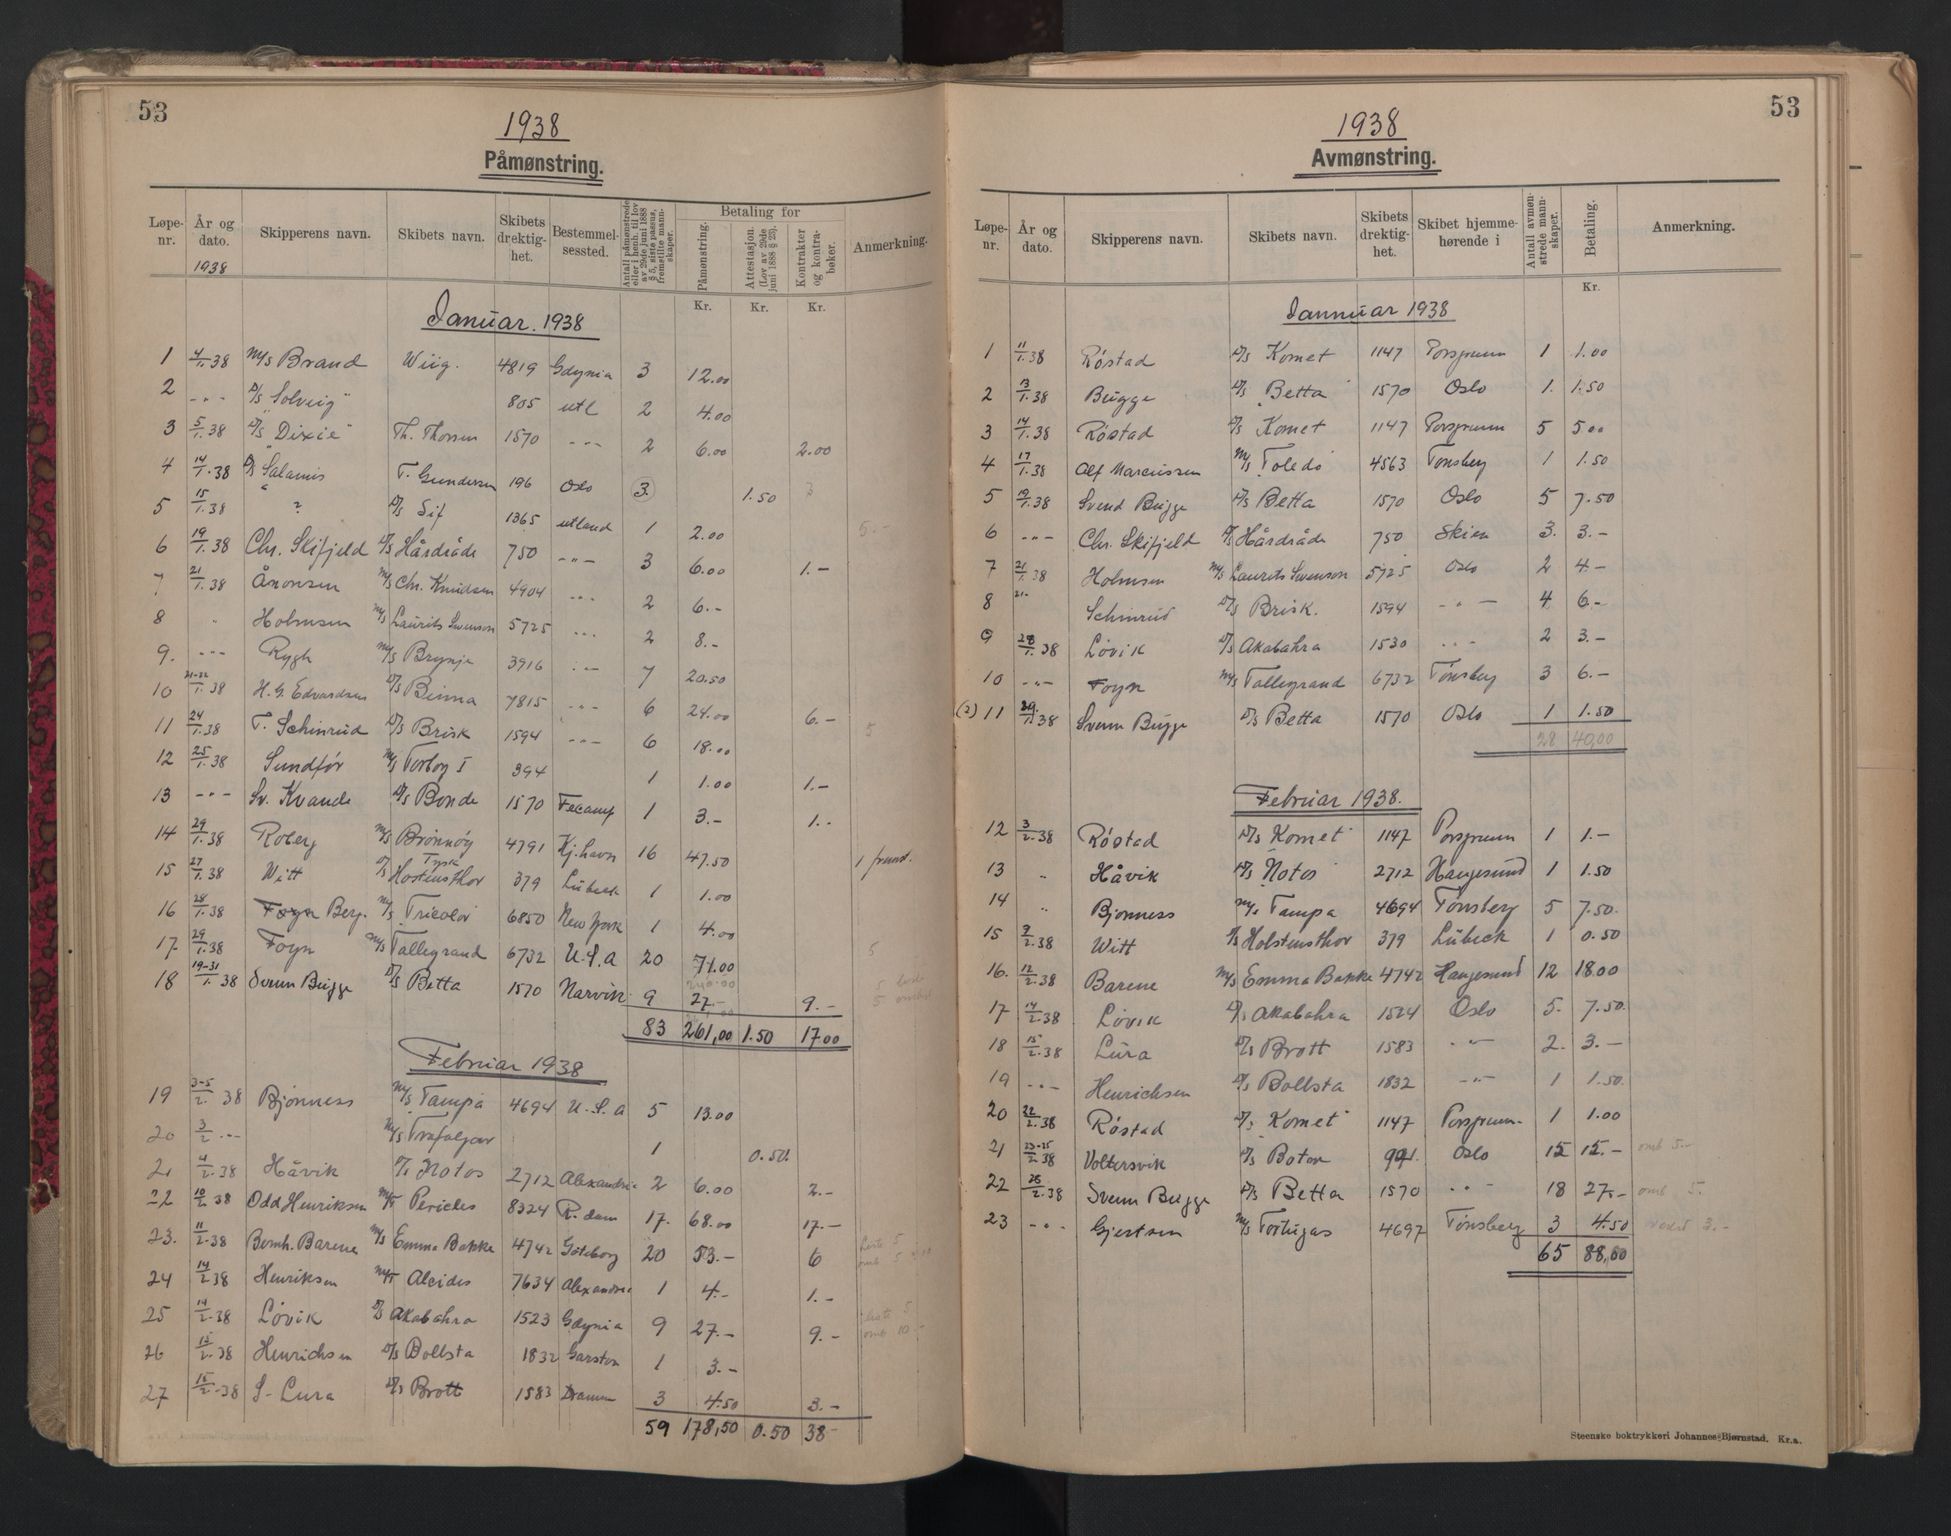 53
1938
Påmønstring.
Løpe-nr. År og dato. Skipperens navn. Skibets navn. Skibets drektig-het. Bestemmel-sessted. Antall påmønstrede eller i henh. til lov av 29de juni 1888 § 5, siste passus, fremstilte mann-skaper. Betaling for Påmønstring. Attestasjon. (Lov av 29de juni 1888 § 23). Kontrakter og kontra-bøker. Anmerkning.
1938
Kr. Kr. Kr.
Januar. 1938
1 4/1.38 M/S Brand Wiig. 4819 Gdynia 3 12.00
2 -"- D/S "Solveig" 805 utl 2 4.00
3 5/1.38 D/S "Dixie" Th. Thorsen 1570 -"- 2 6.00 2.00
4 14/1.38 Salamis T. Gundersen 196 Oslo 3 1.50
5 15/1.38 ? D/S Sif 1365 utland 1 2.00 5.-
6 19/1.38 Chr. Skifjeld D/S Hårdråde 750 -"- 3 6.00 1.-
7 21/1.38 Ånonsen M/S Chr. Knudsen 4904 -"- 2 6.-
8 " Holmsen M/S Laurits Swenson 5725 -"- 2 8.-
9. -"- Rygh M/S Brynje 3916 -"- 7 20.50
10 21-22/1.38 H. G. Edvardsen D/S Beima 7815 -"- 6 24.00 6.-
11 24/1.38 T. Schinrud D/S Brisk 1594 -"- 6 18.00 5
12 25/1.38 Sundfør M/S Torborg I 394 1 1.00 1.-
13 -"- Sv. Kvande D/S Bonde 1570 Fecamp 1 3.- 1.-
14 29/1.38 Roberg M/S Brønnøy 4791 Kj.havn 16 47.50
15 27/1.38 Witt D/S Tysk Hostensthor 379 Lübeck 1 1.00
16 28/1.38 Foyn Berg. M/S Tricolor 6850 New York 1 4.00
17 29/1.38 Foyn M/S Tallegrand 6732 U.S.a 20 71.00 5
18 19-31/1.38 Svenn Bugge D/S Betta 1570 Narvik 9 27.- 9.-
83 261,00 1.50 17 00
Februar 1938
19 3-5/2.38 Bjønness M/S Tampa 4694 U.S.a 5 13.00
20 3/2 -"- M/S Trafalgar 1 0.50.
21 4/2.38 Håvik D/S Notos 2712 Alexandria 2 6.00 2.-
22 10/2.38 Odd Henriksen M/T Pericles 8324 R.dam 17. 68.00 17.-
23. 11/2.38 Bernh. Barene M/S Emma Bakke 4742 Göteborg 20 53.- 6
24 14/2.38 Henriksen M/T Alcides 7634 Alexandria 1 4.- 1.-
25 14/2.38 Løvik D/S Akabahra 1523 Gdynia 9 27.- 9.-
26 15/2.38 Henrichsen D/S Bollsta 1832 Garston 1 3.-
27 15/2.38 S. Lura D/S Brott 1583 Dramm 3 4.50 3.-
59 178,50 0.50 38-
53
1938
Avmønstring.
Løpe-nr. År og dato. Skipperens navn. Skibets navn. Skibets drektig-het. Skibet hjemme-hørende i Antall avmøn-strede mann-skaper. Betaling. Anmerkning.
Kr.
Jannuar 1938
1 11/1.38 Røstad D/S Komet 1147 Porsgrunn 1 1.00
2 13/1.38 Bugge D/S Betta 1570 Oslo 1. 1.50
3 14/1.38 Røstad D/S Komet 1147 Porsgrunn 5 5 00
4 17/1.38 Alf Marcussen M/S Toledo 4563 Tønsberg 1 1.50
5 19/1.38 Svend Bugge D/S Betta 1570 Oslo 5 7.50
6 -"- Chr. Skifjeld D/S Hårdråde 750 Skien 3. 3.-
7 21/1.38 Holmsen M/S Laurits Swenson 5725 Oslo 2 4.-
8 21- Schinrud D/S Brisk. 1594 -"- 4 6.-
9 28/1.38 Løvik D/S Akabahra 1530 -"- 2 3.-
10 -"- Foyn M/S Tallegrand 6732 Tønsberg 3 6.-
(2) 11 29./1.38 Svenn Bugge D/S Betta 1570 Oslo 1 1.50
28 40,00
Februar 1938.
12 3/2.38 Røstad D/S Komet 1147 Porsgrunn 1 1.-
13 " Håvik D/S Notos 2712 Haugesund 1 1.50
14 " Bjønness M/S Tampa 4694 Tønsberg 5 7.50.
15 9/2.38 Witt D/S Holstensthor 379 Lübeck 1 0.50
16. 12/2.38 Barene M/S Emma Bakke 4742 Haugesund 12 18.00
17 14/2.38 Løvik D/S Akabahra 1524 Oslo 5. 7.50.
18 15/2.38 Lura D/S Brott 1583 -"- 2. 3.-
19 -"- Henrichsen D/S Bollsta 1832 -"- 1 1.50.
20 22/2.38 Røstad D/S Komet 1147 Porsgrunn. 1 1.00
21 23-25/2.38 Voltersvik D/S Boton 991. Oslo 15 15.- omb 5.-
22 25/2.38 Svenn Bugge D/S Betta 1570 -"- 18 27.- omb 5.
23 -"- Gjertsen M/S Tortugas 4697 Tønsberg 3 4.50 3.-
65 88,00
Steenske boktrykkeri Johannes Bjørnstad. Kr.a.